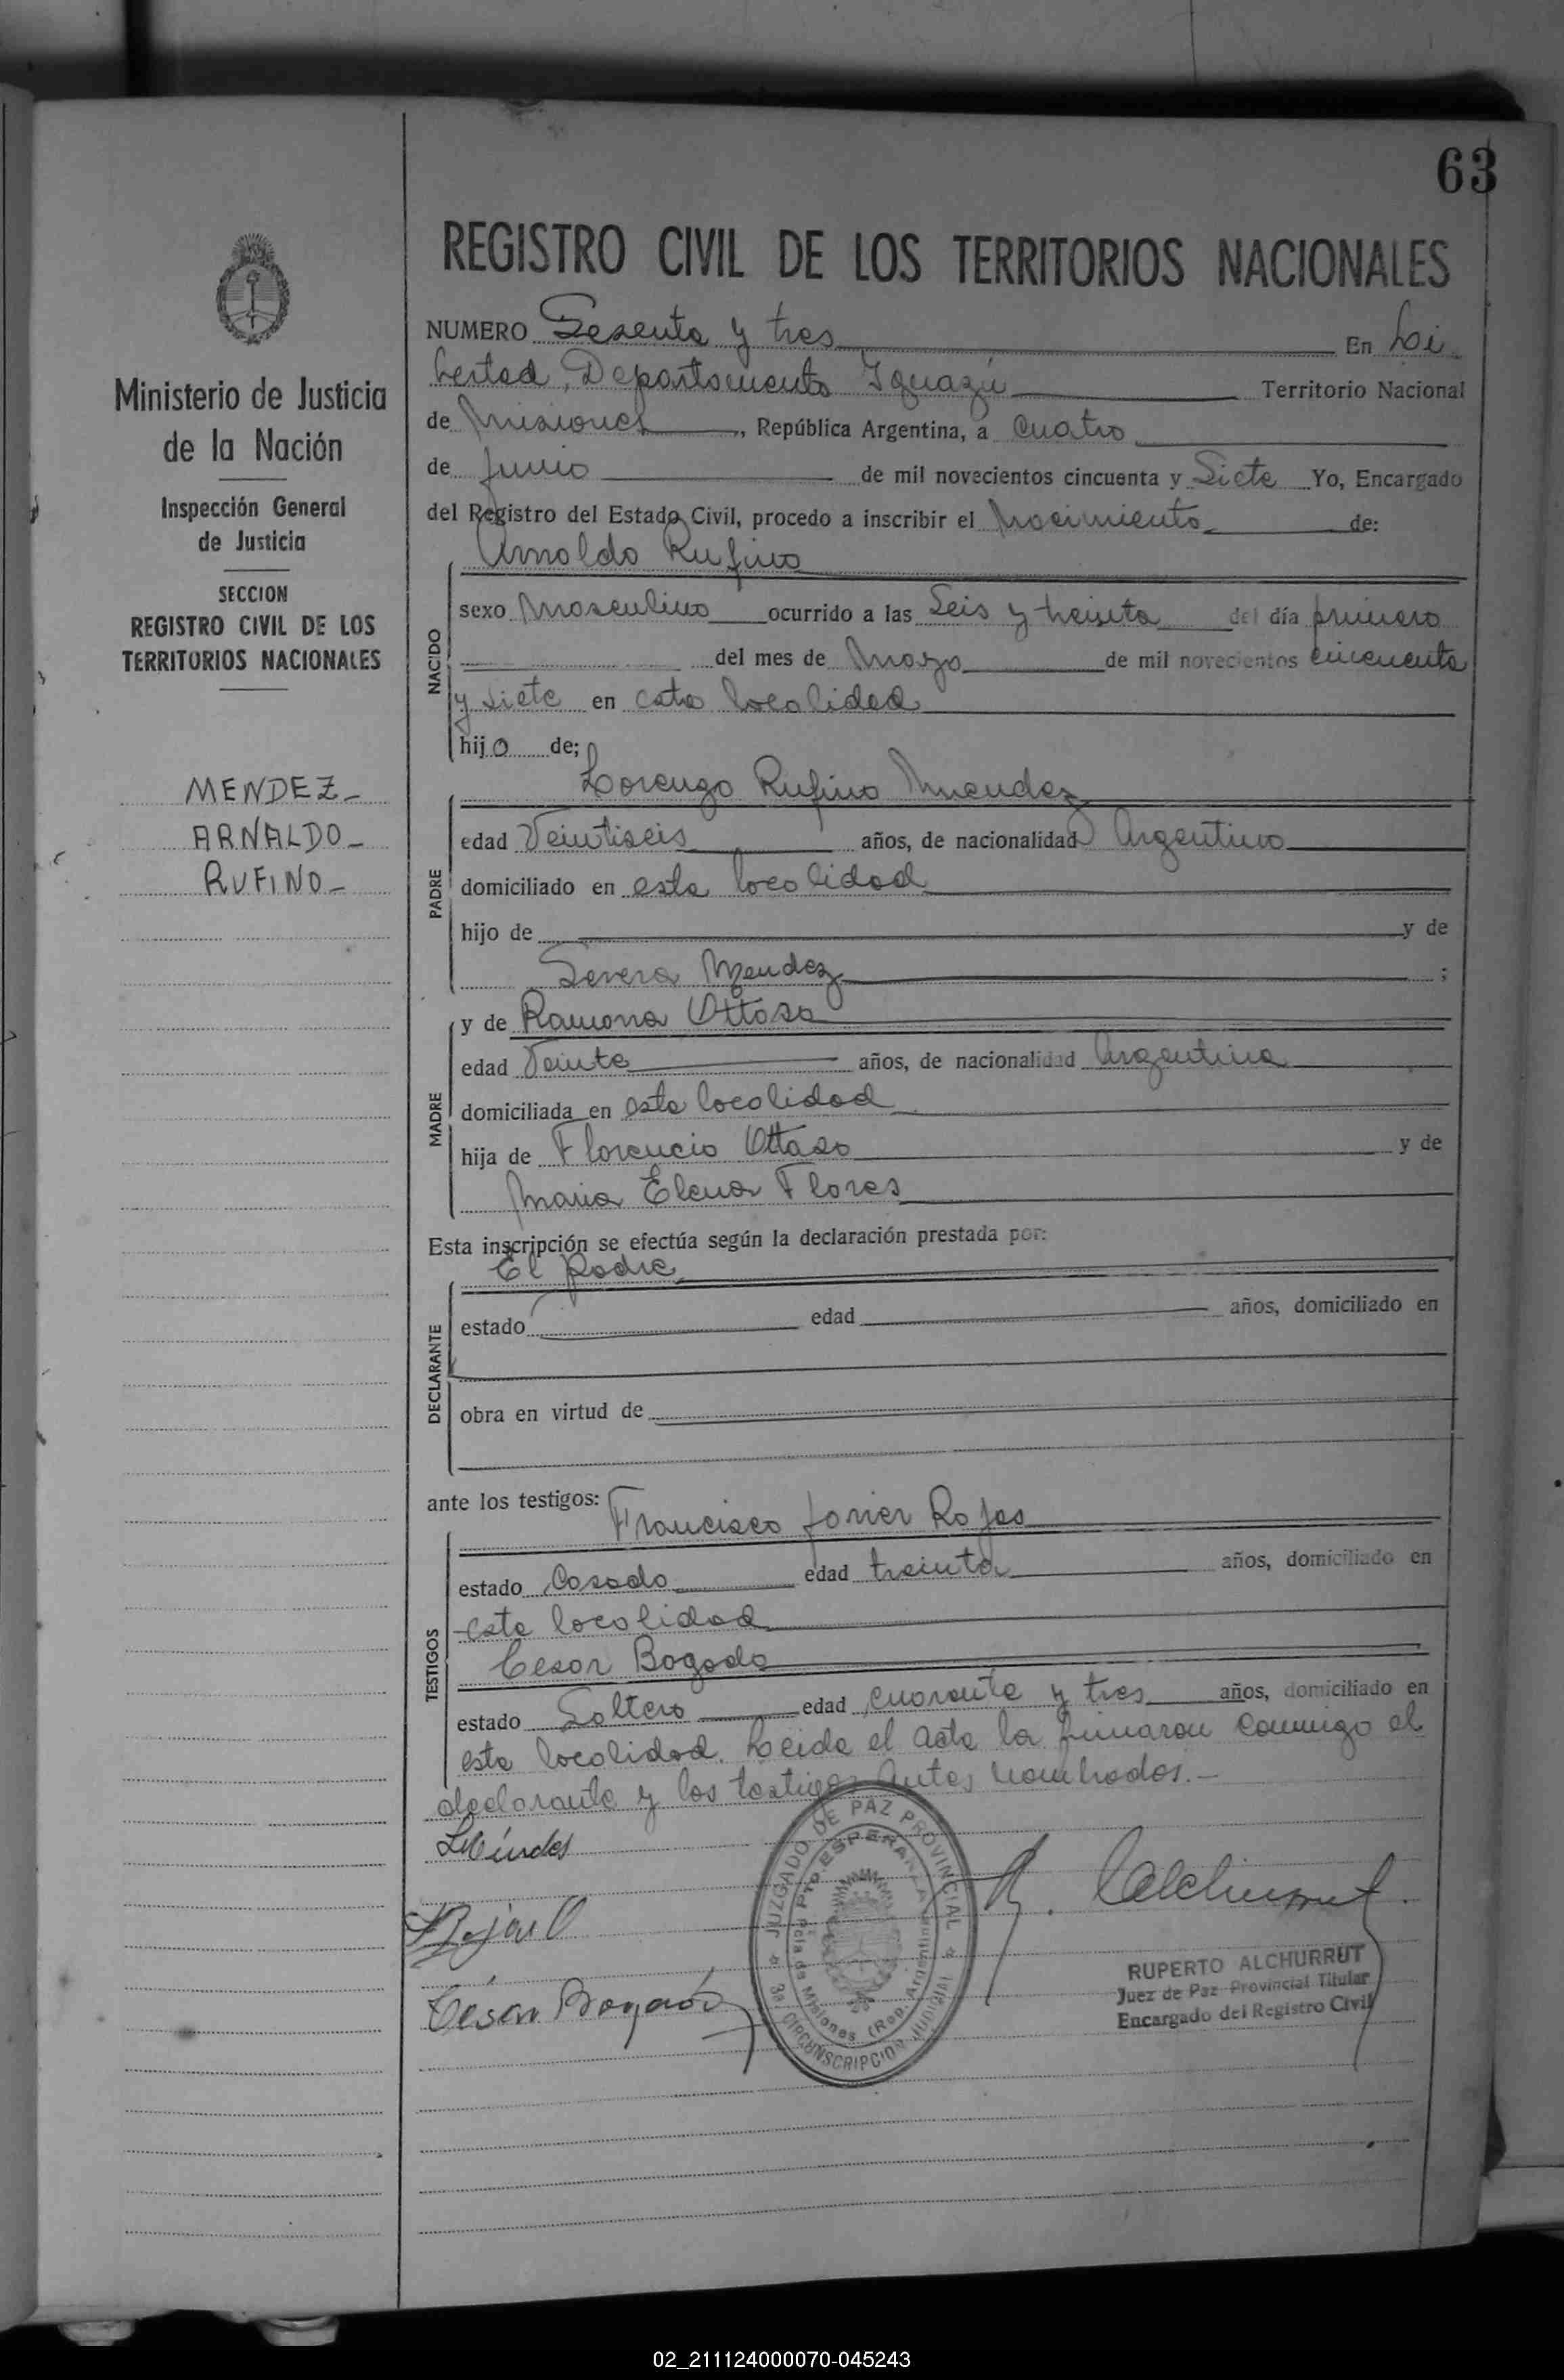 63
REGISTRO CIVIL DE LOS TERRITORIOS NACIONALES
Ministerio de Justicia
de la Nación
Inspección General
de Justicia
SECCION
REGISTRO CIVIL DE LOS
TERRITORIOS NACIONALES
MENDEZ-
ARNALDO-
RUFINO-
NUMERO Sesenta y tres En Li
bertad, Departamento Iguazú Territorio Nacional
de Misiones, República Argentina, a cuatro
de Junio de mil novecientos cincuenta y Siete Yo, Encargado
del Registro del Estado Civil, procedo a inscribir el Nacimiento de:
NACIDO
Arnoldo Rufino
sexo Masculino ocurrido a las Seis y treinta del día primero
del mes de Mayo de mil novecientos cincuenta
y siete en esta localidad
hijo de;
PADRE
Lorenzo Rufino Mendez
edad Veintiseis años, de nacionalidad Argentino
domiciliado en esta localidad
hijo de y de
Severa Mendez ;
MADRE
y de Ramona Ottaso
edad Veinte años, de nacionalidad Argentina
domiciliada en esta localidad
hija de Florencio Ottaso y de
Maria Elena Flores
Esta inscripción se efectúa según la declaración prestada por:
DECLARANTE
El padre
estado edad años, domiciliado en
obra en virtud de
ante los testigos:
TESTIGOS
Francisco Javier Rojas
estado Casado edad treinta años, domiciliado en
esta localidad
Cesar Bogado
estado Soltero edad cuarenta y tres años, domiciliado en
esta localidad. Leida el acta la firmaron conmigo el
declarante y los testigos antes nombrados.-
LMéndes
César Bogado
JUZGADO DE PAZ PROVINCIAL
Pto. ESPERANZA
Pcia de Misiones (Rep. Argentina)
3a. CIRCUNSCRIPCION JUDICIAL
R. Alchurrut
RUPERTO ALCHURRUT
Juez de Paz Provincial Titular
Encargado del Registro Civil
02_211124000070-045243